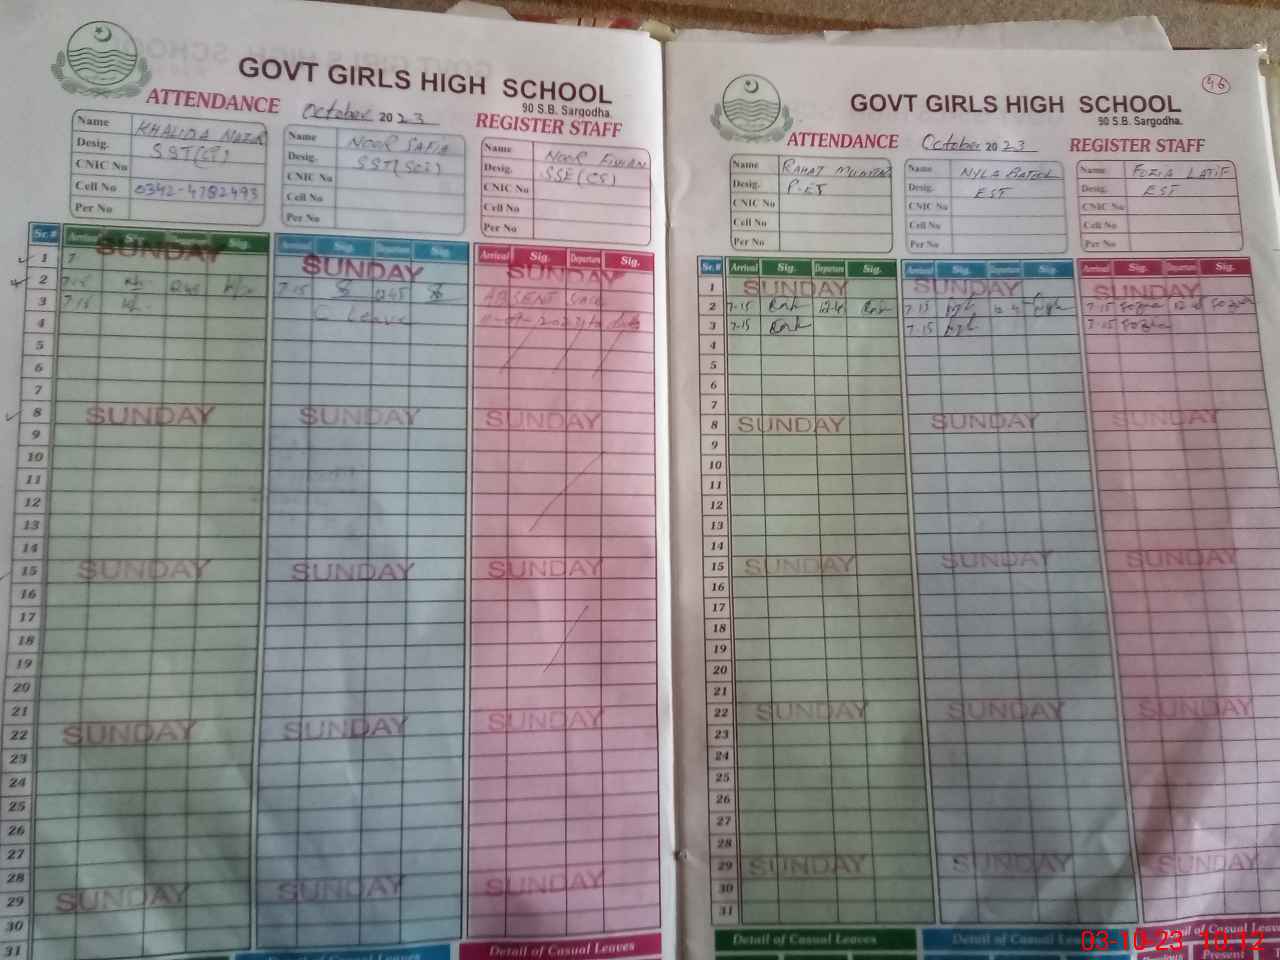 GOVT GIRLS HIGH SCHOOL
90 S.B. Sargodha.
ATTENDANCE October 2023 REGISTER STAFF
Name KHALIDA NAZIR
Desig. SST
CNIC No
Cell No 0342-4782493
Per No
Name NOOR SAFIA
Desig. SST(Sci)
CNIC No
Cell No
Per No
Name NOOR
Desig. SSE(CS)
CNIC No
Cell No
Per No
Sr.# Arrival Sig. Departure Sig. Arrival Sig. Departure Sig. Arrival Sig. Departure Sig.
1 SUNDAY SUNDAY SUNDAY
2 7-15 1245 7-15 1245 ABSENT
3 7-15 C Leave
4
5
6
7
8 SUNDAY SUNDAY SUNDAY
9
10
11
12
13
14
15 SUNDAY SUNDAY SUNDAY
16
17
18
19
20
21
22 SUNDAY SUNDAY SUNDAY
23
24
25
26
27
28
29 SUNDAY SUNDAY SUNDAY
30
31
Detail of Casual Leaves
46
GOVT GIRLS HIGH SCHOOL
90 S.B. Sargodha.
ATTENDANCE October 2023 REGISTER STAFF
Name RAHAT
Desig. P.ET
CNIC No
Cell No
Per No
Name NYLA BATOOL
Desig. EST
CNIC No
Cell No
Per No
Name FOZIA LATIF
Desig. EST
CNIC No
Cell No
Per No
Sr.# Arrival Sig. Departure Sig. Arrival Sig. Departure Sig. Arrival Sig. Departure Sig.
1 SUNDAY SUNDAY SUNDAY
2 7-15 7-15 7-15 Fozia Fozia
3 7-15 7-15 7-15 Fozia
4
5
6
7
8 SUNDAY SUNDAY SUNDAY
9
10
11
12
13
14
15 SUNDAY SUNDAY SUNDAY
16
17
18
19
20
21
22 SUNDAY SUNDAY SUNDAY
23
24
25
26
27
28
29 SUNDAY SUNDAY SUNDAY
30
31
Detail of Casual Leaves Detail of Casual
Present
03-10-23 10:12